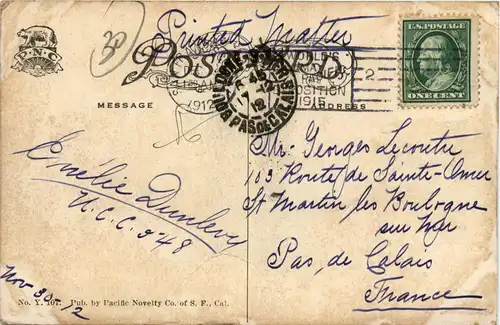 Printed Matter
P.N.C.
POST CARD
U.S. POSTAGE
ONE CENT
1912
POSITION
1915
MESSAGE
ADDRESS
BOULOGNE-SUR-MER
PAS DE CALAIS
12
Mr. Georges Lecoutre
103 Route de Sainte-Omer
St Martin les Boulogne
sur Mer
Pas de Calais
France
Emélie Dunlevy
U.C.C. 548
Nov 30-12
No. Y. 107. Pub. by Pacific Novelty Co. of S. F., Cal.